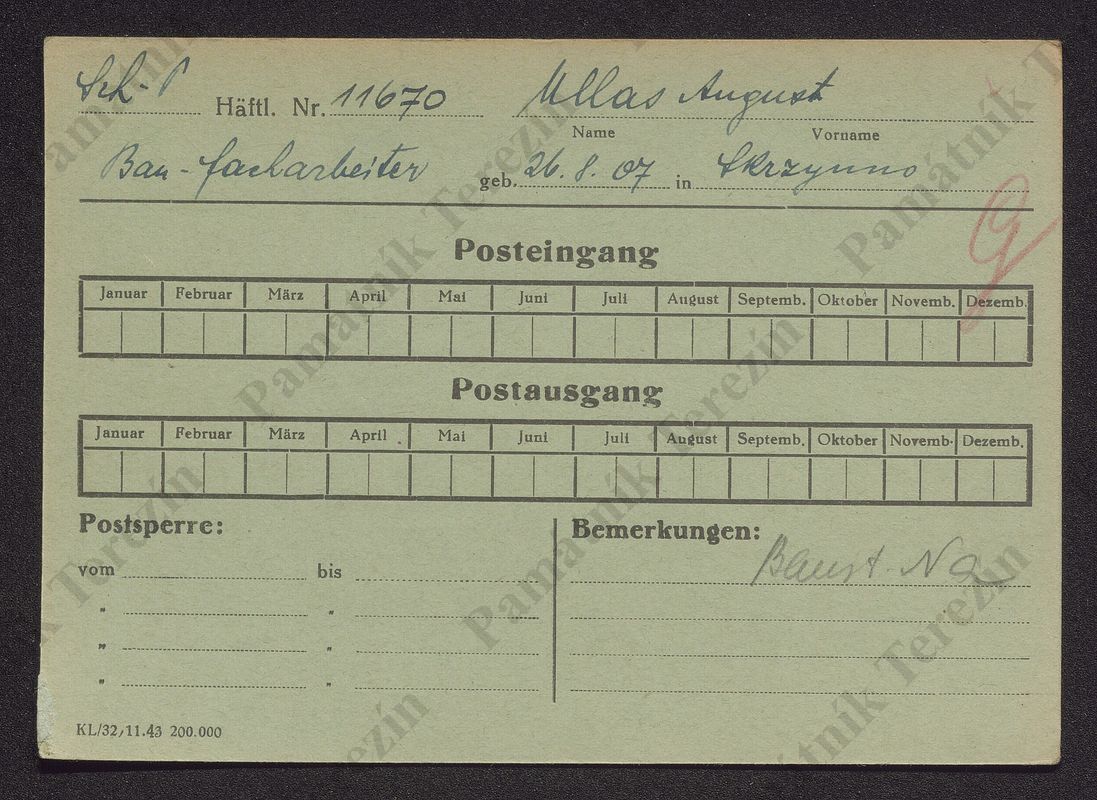 Sch-P Häftl. Nr. 11670 Ullas August
Name Vorname
Bau-facharbeiter geb. 26.8.07 in Skrzynno
Posteingang
Januar Februar März April Mai Juni Juli August Septemb. Oktober Novemb. Dezemb.
Postausgang
Januar Februar März April Mai Juni Juli August Septemb. Oktober Novemb. Dezemb.
Postsperre: Bemerkungen:
vom bis
" "
" "
" "
KL/32/11.43 200.000
Památník Terezín